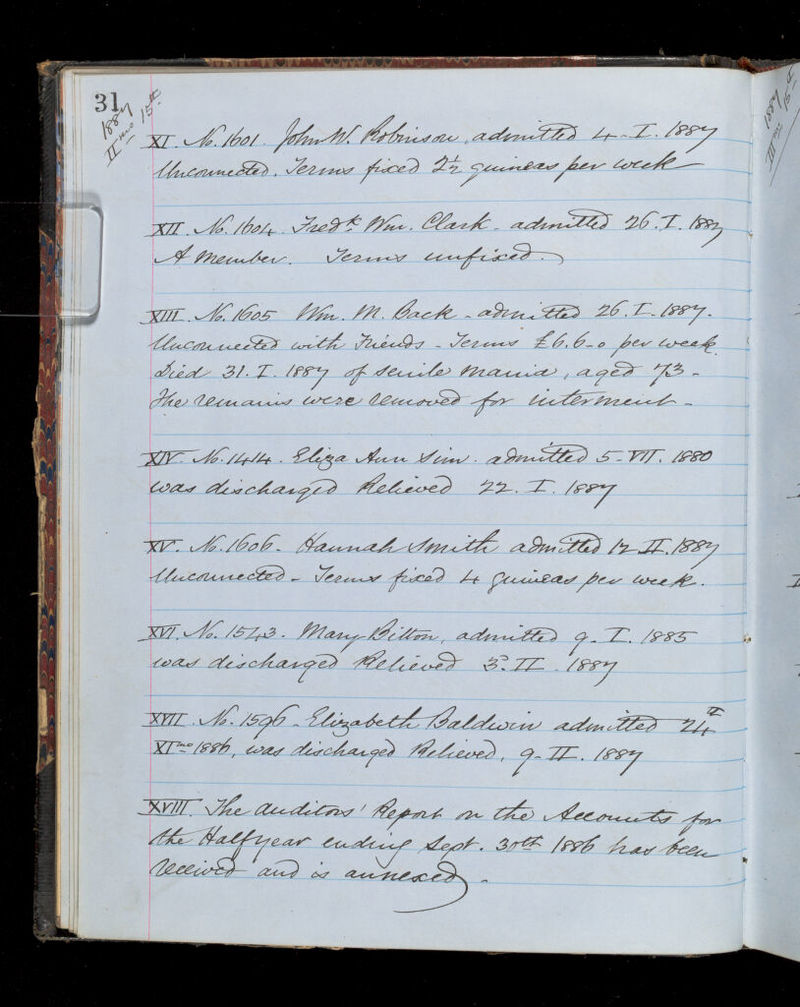 31
1887
II mo 15th
XI. No. 1601. John W. Robinson, admitted 4-I-1887
Unconnected. Terms fixed 2½ guineas per week
XII. No. 1604. Fredk. Wm. Clark - admitted 26.I.1887
A Member. Terms unfixed.
XIII. No. 1605 Wm. M. Back - admitted 26.I-1887.
Unconnected with Friends - Terms £6.6-0 per week.
Died 31.I.1887 of senile mania, aged 73 -
The remains were removed for interment -
XIV. No. 1414. Eliza Ann Sim. admitted 5-VII.1880
was discharged Relieved 22.I.1887
XV. No. 1606. Hannah Smith admitted 12.II.1887
Unconnected - Terms fixed 4 guineas per week.
XVI. No. 1543. Mary Bitton, admitted 9-I.1885
was discharged Relieved 3d. II.1887
XVII. No. 1596 - Elizabeth Baldwin admitted 24th
XI mo 1886, was discharged Relieved, 9-II.1887
XVIII. The Auditors' Report on the Accounts for
the Half year ending Sept. 30th 1886 has been
received and is annexed -
1887
III mo 15th